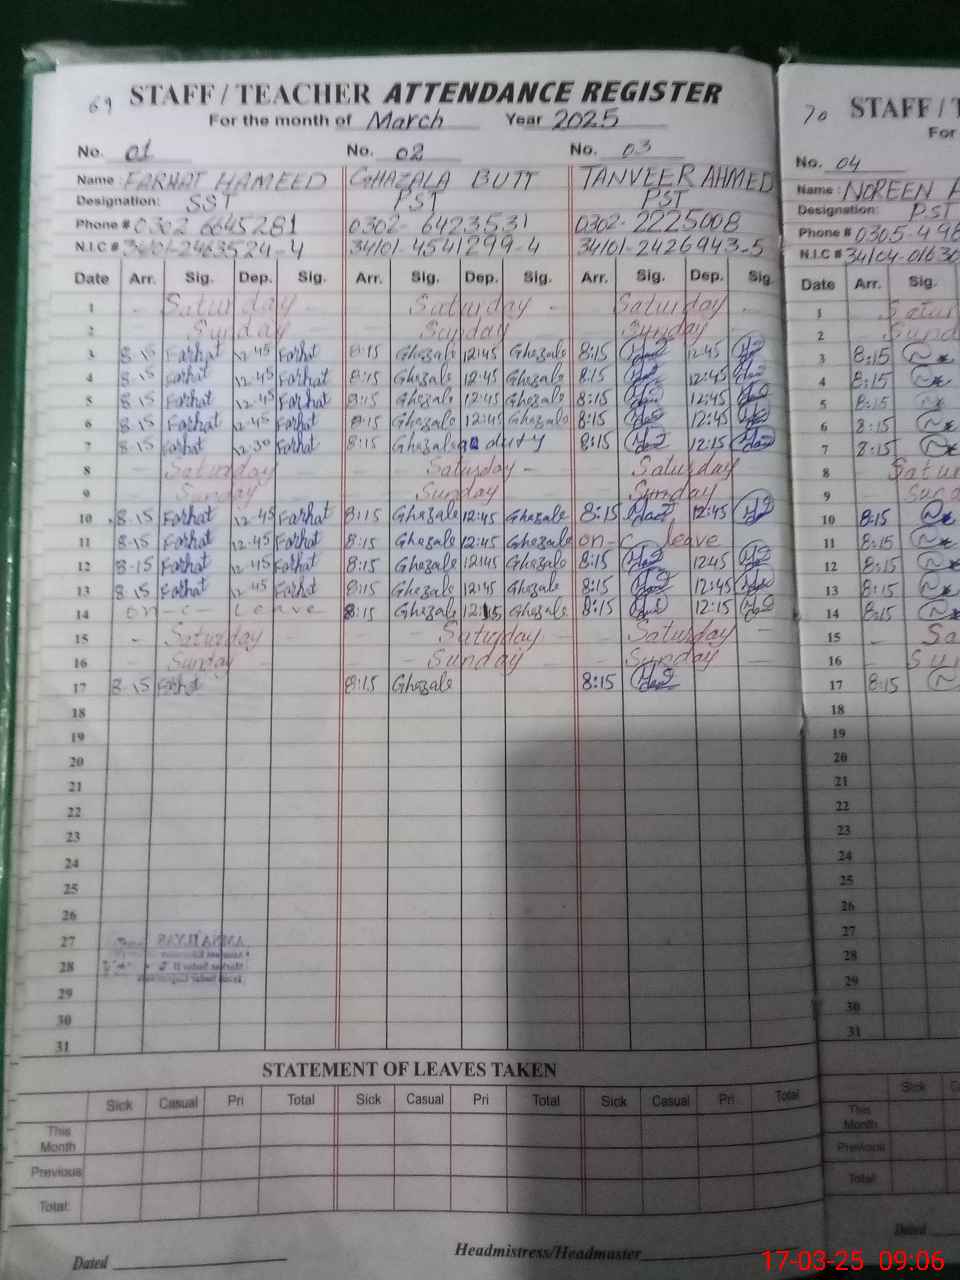 69 STAFF / TEACHER ATTENDANCE REGISTER
For the month of March Year 2025
No. 01 No. 02 No. 03
Name : FARHAT HAMEED GHAZALA BUTT TANVEER AHMED
Designation: SST PST PST
Phone # 0302 6645281 0302- 6423531 0302- 2225008
N.I.C # 34101-2463524-4 34101-4541299-4 34101-2426943-5
Date Arr. Sig. Dep. Sig. Arr. Sig. Dep. Sig. Arr. Sig. Dep. Sig.
1 - Saturday - Saturday - Saturday -
2 Sunday Sunday Sunday
3 8.15 Farhat 12.45 Farhat 8:15 Ghazala 12:45 Ghazala 8:15 12:45
4 8.15 Farhat 12.45 Farhat 8:15 Ghazala 12:45 Ghazala 8:15 12:45
5 8.15 Farhat 12.45 Farhat 8:15 Ghazala 12:45 Ghazala 8:15 12:45
6 8.15 Farhat 12.45 Farhat 8:15 Ghazala 12:45 Ghazala 8:15 12:45
7 8.15 Farhat 12.30 Farhat 8:15 Ghazala duty 8:15 12:15
8 Saturday Saturday - Saturday
9 Sunday Sunday Sunday
10 8.15 Farhat 12.45 Farhat 8:15 Ghazala 12:45 Ghazala 8:15 12:45
11 8.15 Farhat 12.45 Farhat 8:15 Ghazala 12:45 Ghazala on-c- leave
12 8.15 Farhat 12.45 Farhat 8:15 Ghazala 12:45 Ghazala 8:15 12:45
13 8.15 Farhat 12.45 Farhat 8:15 Ghazala 12:45 Ghazala 8:15 12:45
14 on-c- Leave 8:15 Ghazala 12:15 Ghazala 8:15 12:15
15 - Saturday Saturday Saturday
16 - Sunday - Sunday Sunday
17 8.15 Farhat 8:15 Ghazala 8:15
18
19
20
21
22
23
24
25
26
27
28
29
30
31
STATEMENT OF LEAVES TAKEN
Sick Casual Pri Total Sick Casual Pri Total Sick Casual Pri Total
This Month
Previous
Total:
Dated Headmistress/Headmaster
70 STAFF / T
For
No. 04
Name : NOREEN
Designation: PST
Phone # 0305-498
N.I.C # 34104-01630
Date Arr. Sig.
1 Satur
2 Sund
3 8:15
4 8:15
5 8:15
6 8:15
7 8:15
8 Satur
9 Sund
10 8:15
11 8:15
12 8:15
13 8:15
14 8:15
15 - Sa
16 - Sun
17 8:15
18
19
20
21
22
23
24
25
26
27
28
29
30
31
Sick
This Month
Previous
Total:
Dated
17-03-25 09:06